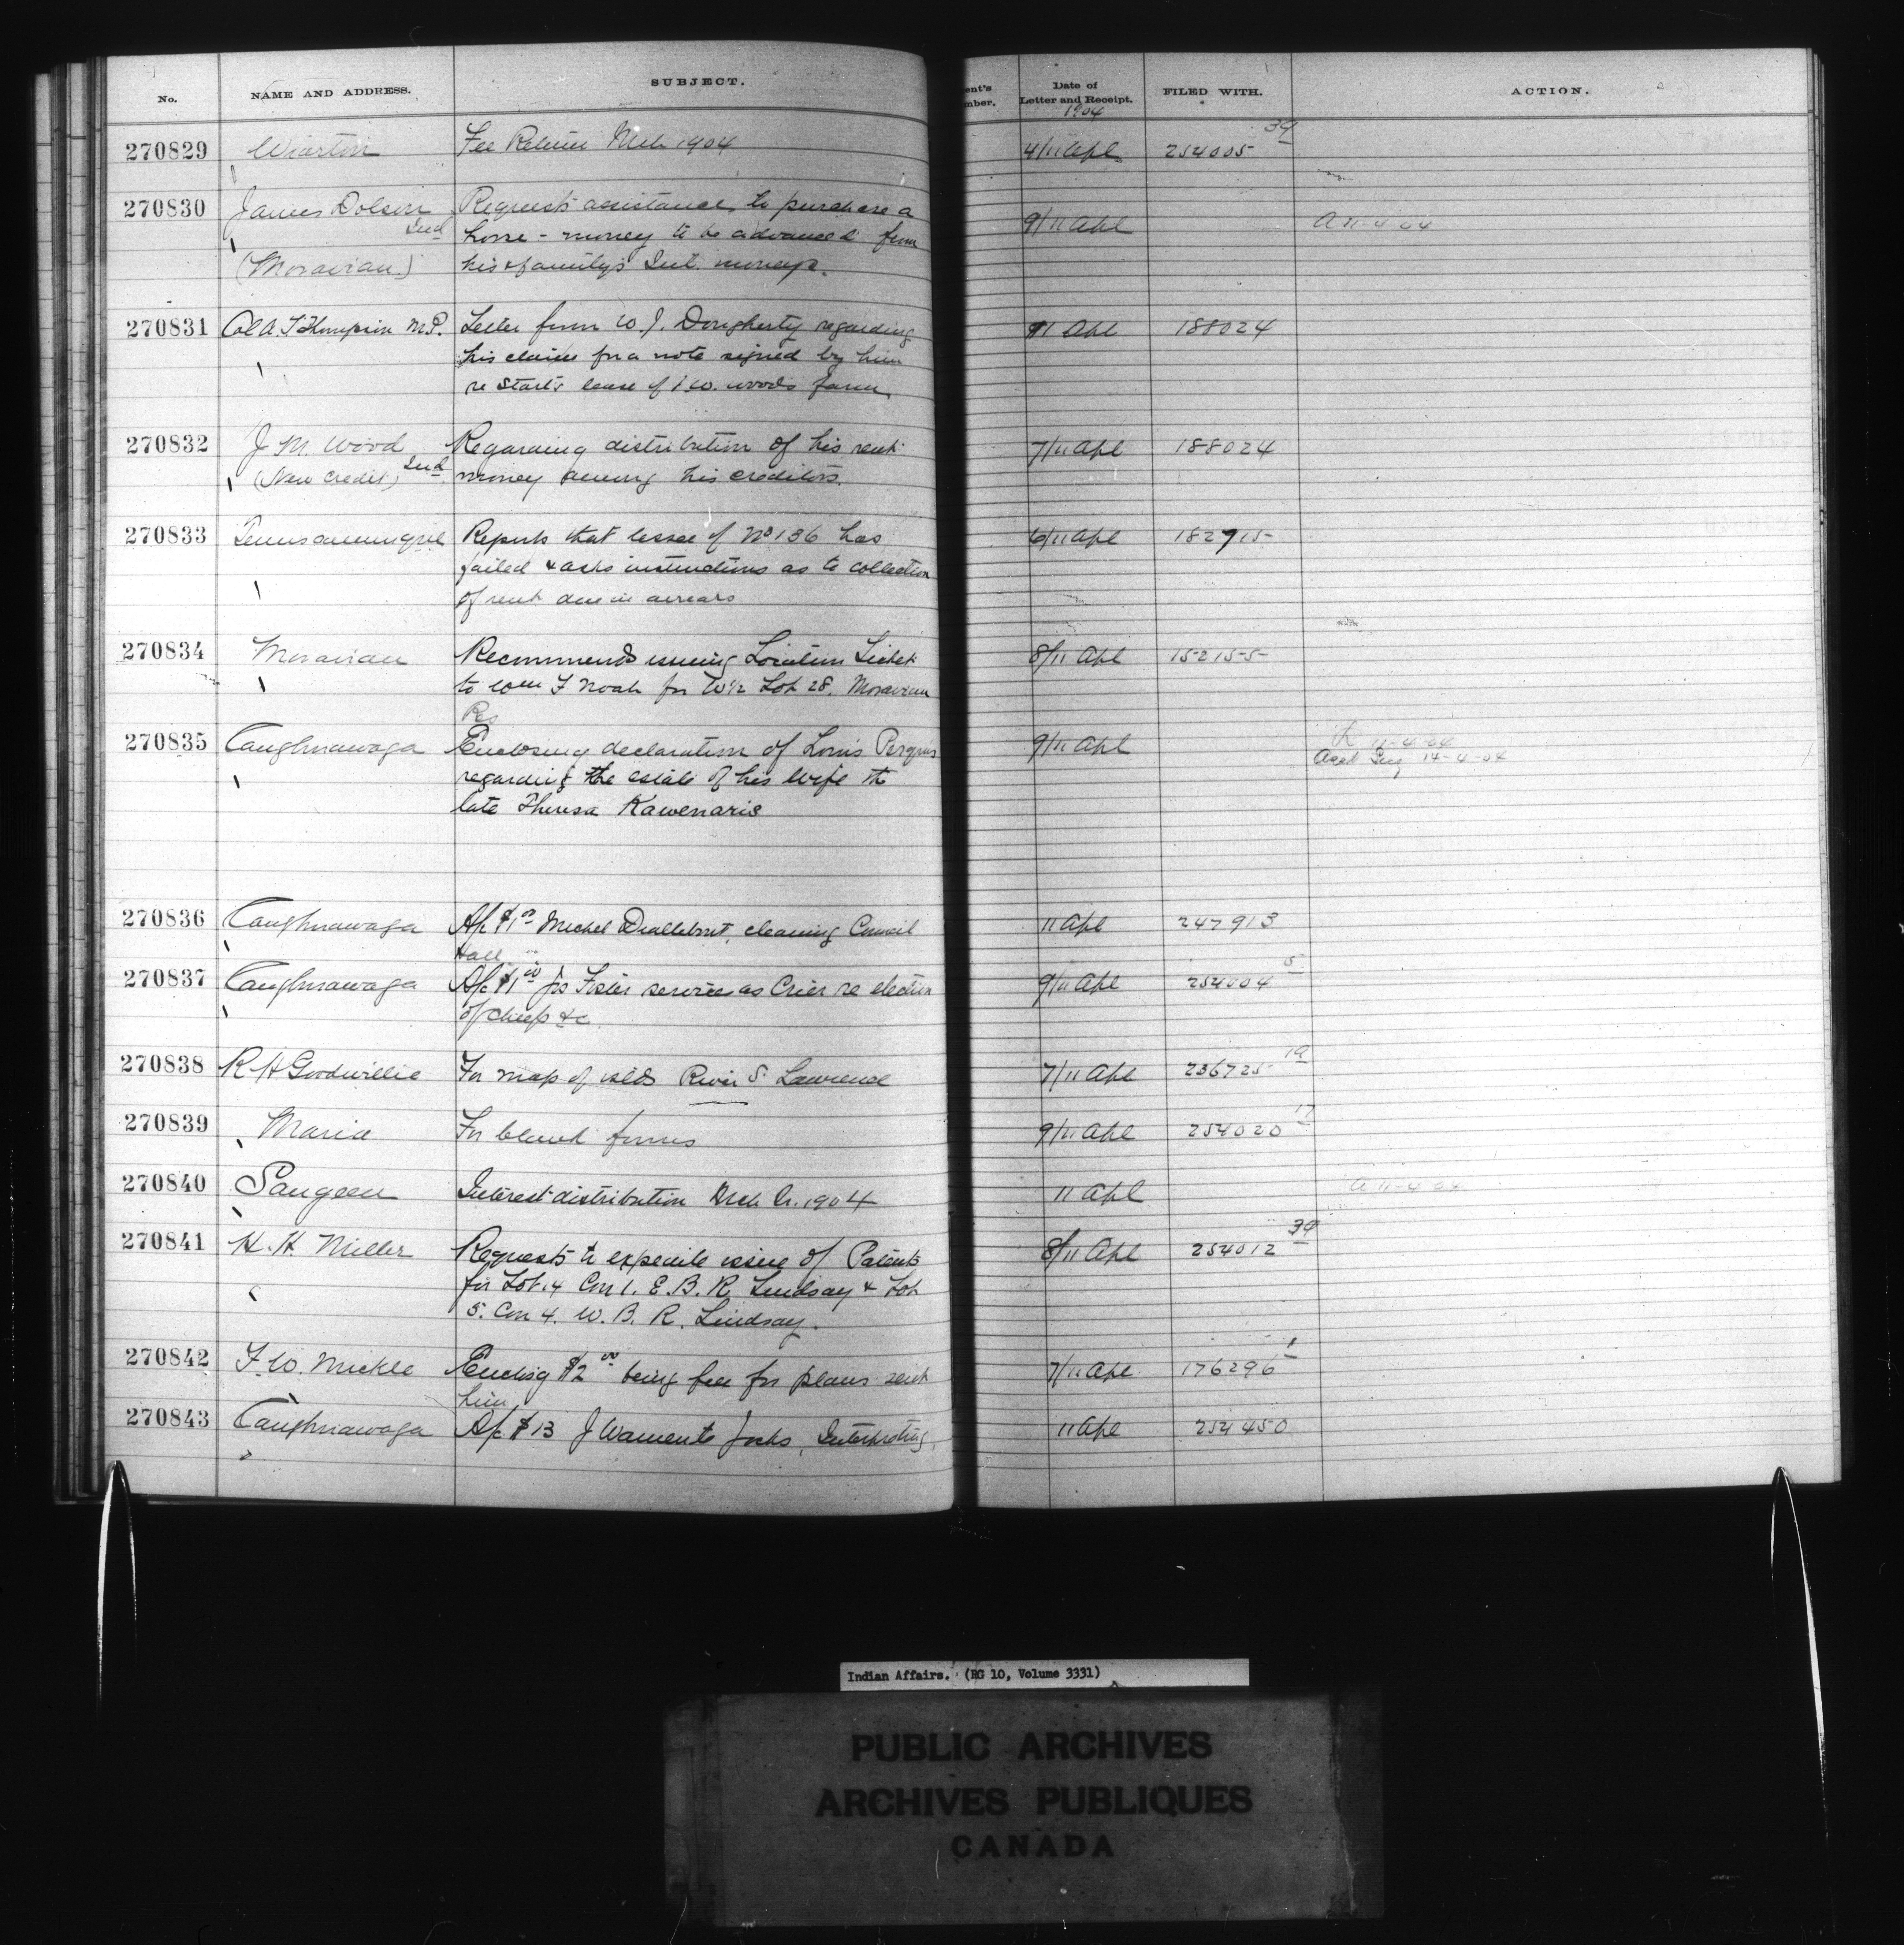 No. NAME AND ADDRESS. SUBJECT. ent's mber. Date of Letter and Receipt. 1904 FILED WITH. ACTION.
270829 Wiarton Fee Return Mch 1904 4/11 Apl 254005 39
270830 James Dolson Requests assistance to purchase a 9/11 Apl A 11-4-04
Ind horse - money to be advanced from
(Moravian) his & family's Int. moneys.
270831 Col A. T. Thompson M.P. Letter from W. J. Dougherty regarding 9/11 Apl 188024
his claim for a note signed by him
re Start's lease of J W. Wood's farm
270832 J M. Wood Regarding distribution of his rent 7/11 Apl 188024
(New Credit) Ind money among his creditors.
270833 Reports that lessee of No 136 has 6/11 Apl 182715
failed & asks instructions as to collection
of rent due in arrears
270834 Moravian Recommends issuing Location Ticket 8/11 Apl 152155
to Wm F Noah for W½ Lot 28. Moravian
Rs
270835 Caughnawaga Enclosing declaration of Louis 9/11 Apl 11-4-04
regarding the estate of his wife the 14-4-04
late Theresa Kawennaris
270836 Caughnawaga A/c $1 00 Michel cleaning Council 11 Apl 247913
Hall
270837 Caughnawaga A/c $1 00 Jos Foster services as Crier re election 9/11 Apl 254004 5
of chiefs &c
270838 R H Goodwillie For map of islds River S. Lawrence 7/11 Apl 236725 19
270839 Maria For blank forms 9/11 Apl 254020 17
270840 Saugeen Interest distribution Mch Qr. 1904 11 Apl A 11-4-04
270841 H. H. Miller Requests to expedite issue of Patents 8/11 Apl 254012 39
for Lot 4 Con 1. E. B. R. Lindsay & Lot
5. Con 4. W. B. R. Lindsay.
270842 F. W. Mickle Enclosg $2 00 being fee for plans sent 7/11 Apl 176296 1
him
270843 Caughnawaga A/c $13 J Jocks, Interpreting 11 Apl 254450
Indian Affairs. (RG 10, Volume 3331)
PUBLIC ARCHIVES
ARCHIVES PUBLIQUES
CANADA